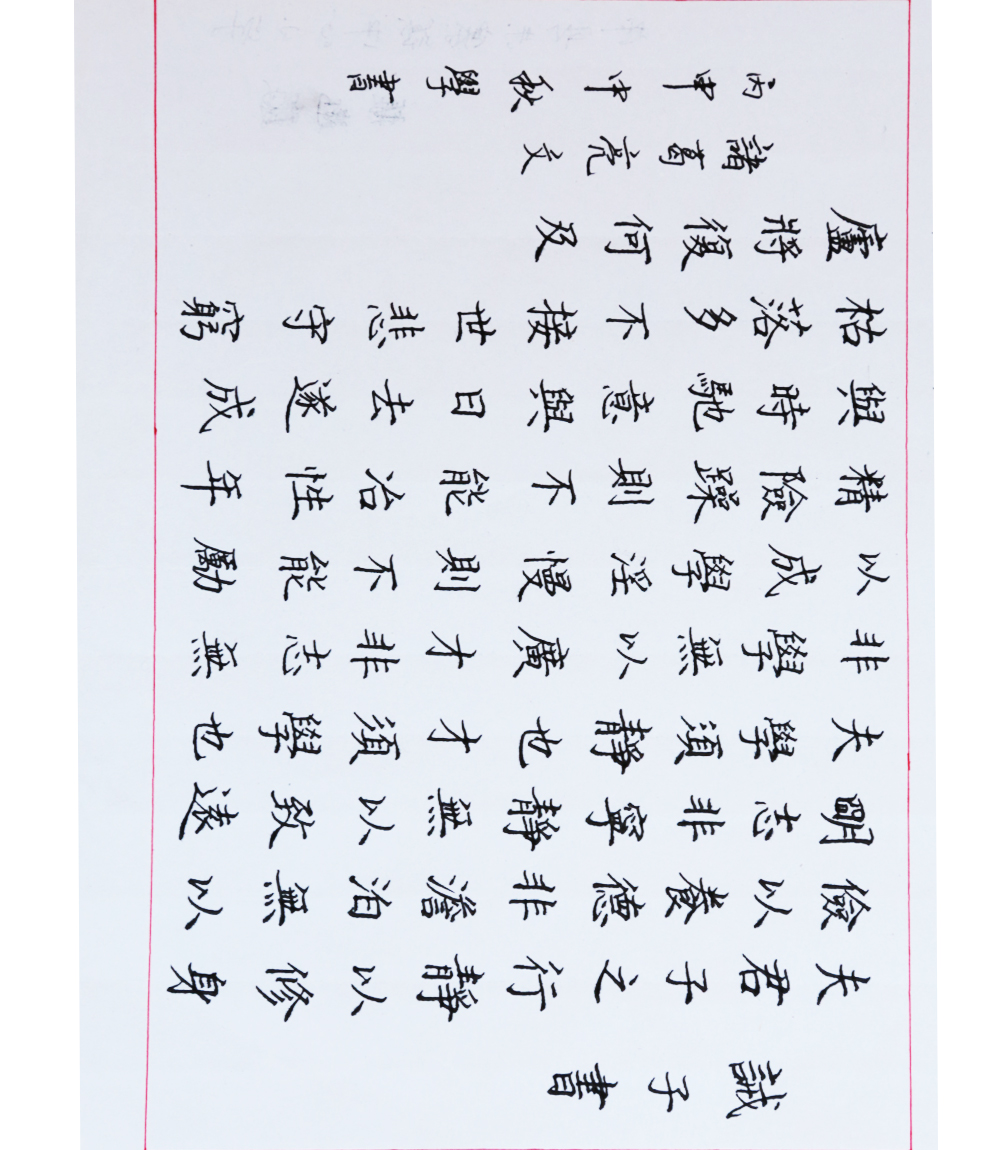 誡子書
夫君子之行靜以修身
儉以養德非澹泊無以
明志非寧靜無以致遠
夫學須靜也才須學也
非學無以廣才非志無
以成學淫慢則不能勵
精險躁則不能冶性年
與時馳意與日去遂成
枯落多不接世悲守窮
廬將復何及
諸葛亮文
丙申中秋學書